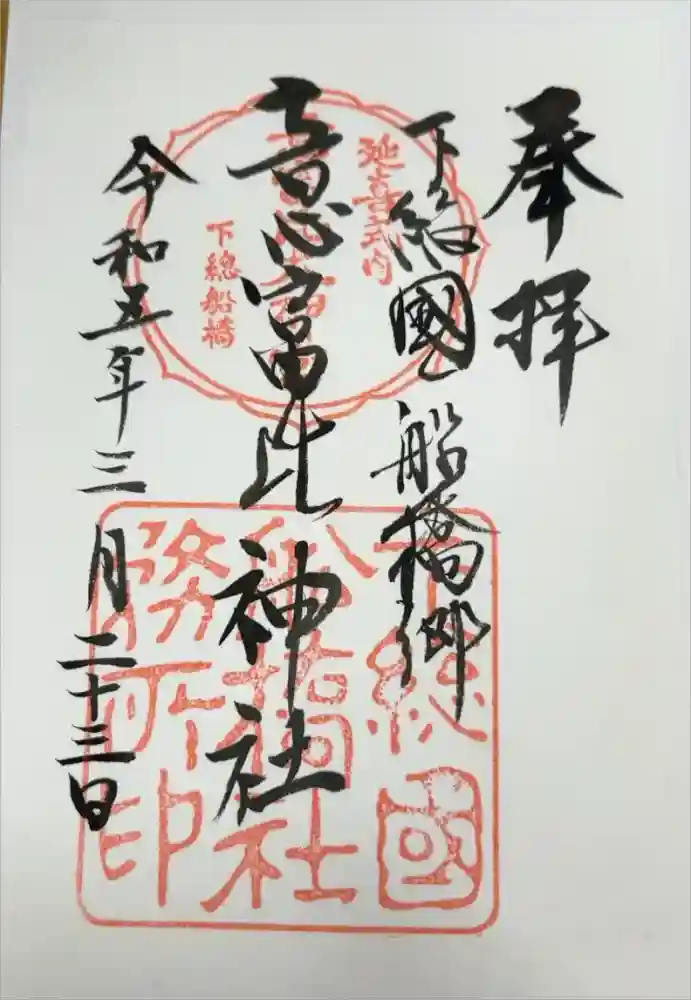 奉拝
下総國船橋郷
意富比神社
令和五年三月二十三日
延喜式内
意富比神社
下總船橋
下総國
船橋社
務所印